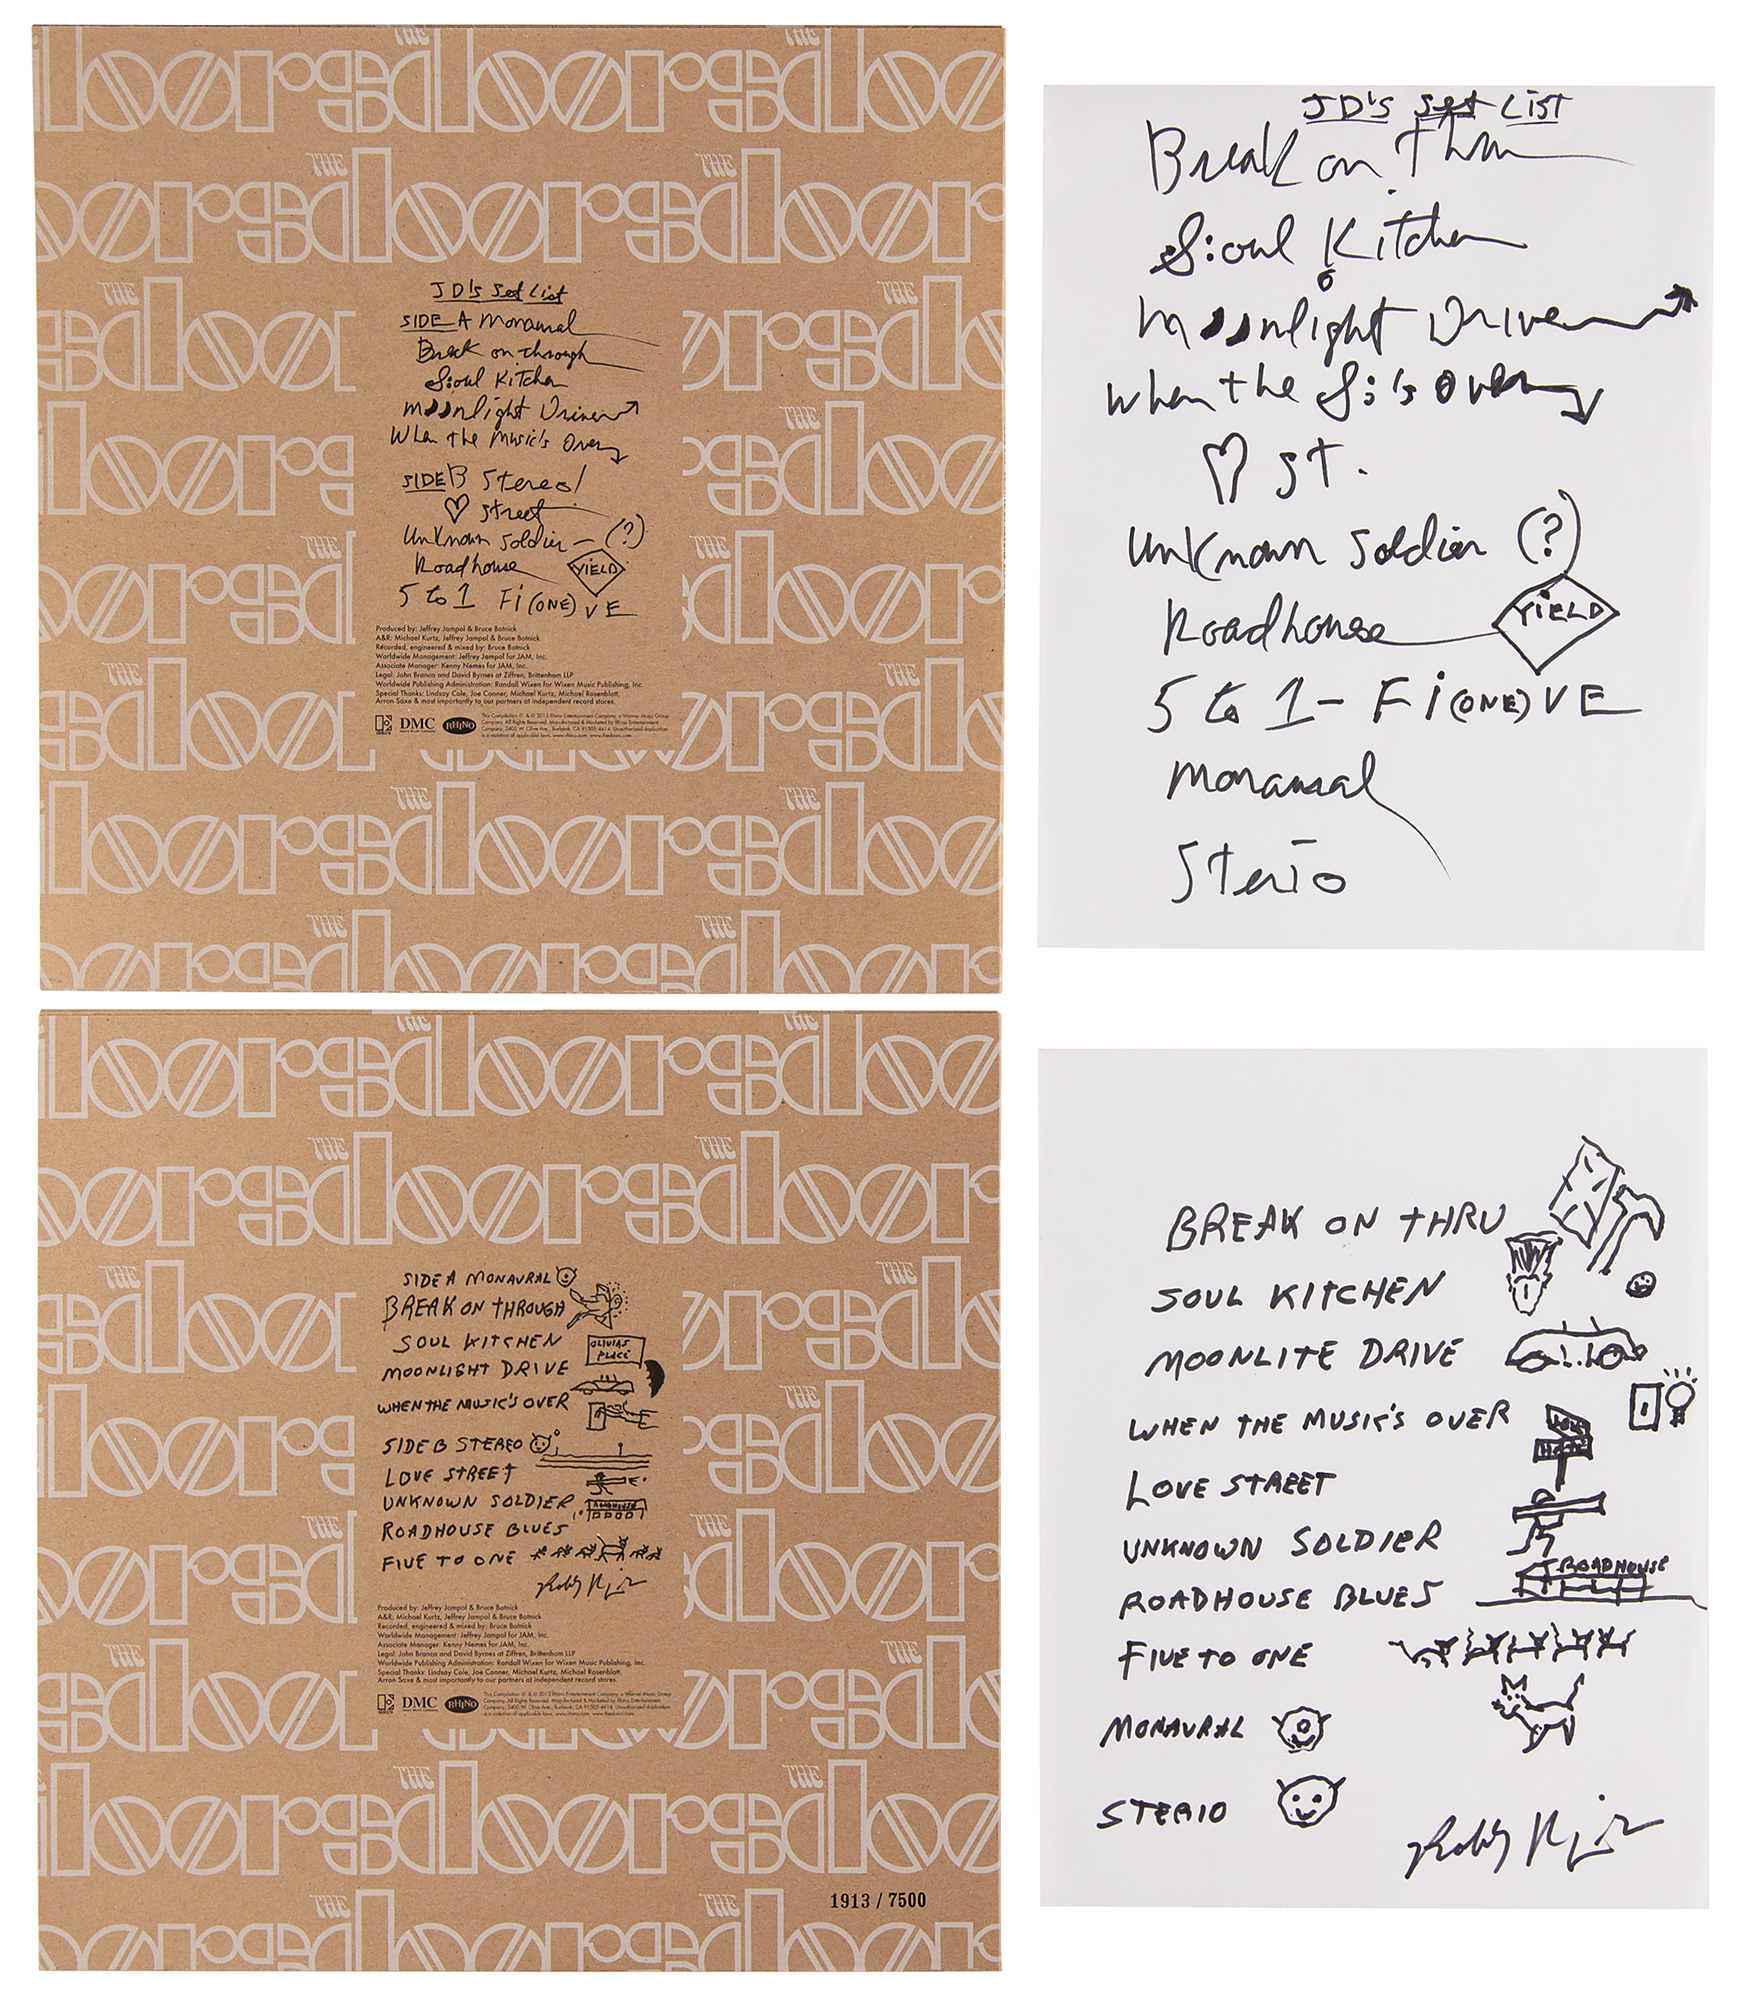 THE doors
JD's Set List
SIDE A Monaural
Break on through
S:oul Kitchen
Moonlight Drive
When the Music's Over
SIDE B Stereo!
♡ Street
Unknown Soldier – (?)
Roadhouse YIELD
5 to 1 Fi(ONE)VE
Produced by: Jeffrey Jampol & Bruce Botnick
A&R: Michael Kurtz, Jeffrey Jampol & Bruce Botnick
Recorded, engineered & mixed by: Bruce Botnick
Worldwide Management: Jeffrey Jampol for JAM, Inc.
Associate Manager: Kenny Nemes for JAM, Inc.
Legal: John Branca and David Byrnes at Ziffren, Brittenham LLP
Worldwide Publishing Administration: Randall Wixen for Wixen Music Publishing, Inc.
Special Thanks: Lindsay Cole, Joe Conner, Michael Kurtz, Michael Rosenblatt,
Arron Saxe & most importantly to our partners at independent record stores.
DMC RHINO
This Compilation ℗ & © 2013 Rhino Entertainment Company, a Warner Music Group
Company. All Rights Reserved. Manufactured & Marketed by Rhino Entertainment
Company, 3400 W. Olive Ave., Burbank, CA 91505-4614. Unauthorized duplication
is a violation of applicable laws. www.rhino.com www.thedoors.com
JD's Set List
Break on Thru
S:oul Kitchen
Moonlight Drive
When the S:'s Over
♡ St.
Unknown Soldier (?)
Roadhouse YIELD
5 to 1 – Fi(ONE)VE
Monaural
Sterio
THE doors
SIDE A MONAURAL
BREAK ON THROUGH
SOUL KITCHEN OLIVIAS PLACE
MOONLIGHT DRIVE
WHEN THE MUSIC'S OVER
SIDE B STEREO
LOVE STREET
UNKNOWN SOLDIER ROADHOUSE
ROADHOUSE BLUES
FIVE TO ONE
Robby Krieger
Produced by: Jeffrey Jampol & Bruce Botnick
A&R: Michael Kurtz, Jeffrey Jampol & Bruce Botnick
Recorded, engineered & mixed by: Bruce Botnick
Worldwide Management: Jeffrey Jampol for JAM, Inc.
Associate Manager: Kenny Nemes for JAM, Inc.
Legal: John Branca and David Byrnes at Ziffren, Brittenham LLP
Worldwide Publishing Administration: Randall Wixen for Wixen Music Publishing, Inc.
Special Thanks: Lindsay Cole, Joe Conner, Michael Kurtz, Michael Rosenblatt,
Arron Saxe & most importantly to our partners at independent record stores.
DMC RHINO
This Compilation ℗ & © 2013 Rhino Entertainment Company, a Warner Music Group
Company. All Rights Reserved. Manufactured & Marketed by Rhino Entertainment
Company, 3400 W. Olive Ave., Burbank, CA 91505-4614. Unauthorized duplication
is a violation of applicable laws. www.rhino.com www.thedoors.com
1913 / 7500
BREAK ON THRU
SOUL KITCHEN
MOONLITE DRIVE
WHEN THE MUSIC'S OVER
LOVE STREET
UNKNOWN SOLDIER
ROADHOUSE
ROADHOUSE BLUES
FIVE TO ONE
MONAURAL
STERIO
Robby Krieger